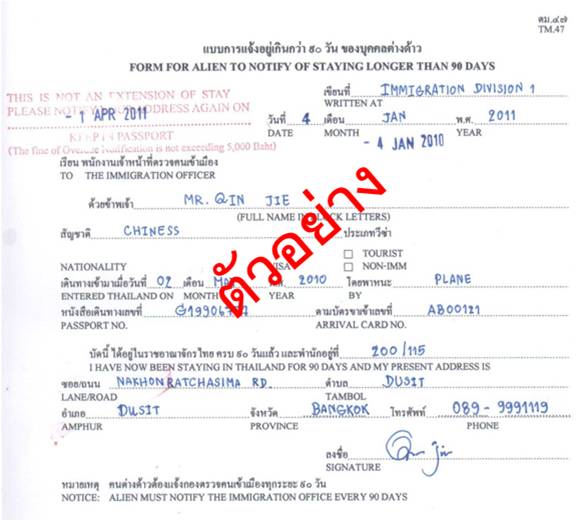 ตม.๔๗
TM.47
แบบการแจ้งอยู่เกินกว่า ๙๐ วัน ของบุคคลต่างด้าว
FORM FOR ALIEN TO NOTIFY OF STAYING LONGER THAN 90 DAYS
THIS IS NOT AN EXTENSION OF STAY
PLEASE NOTIFY YOUR ADDRESS AGAIN ON
- 1 APR 2011
KEEP IN PASSPORT
(The fine of Overdue Notification is not exceeding 5,000 Baht)
เขียนที่ IMMIGRATION DIVISION 1
WRITTEN AT
วันที่ 4 เดือน JAN พ.ศ. 2011
DATE MONTH YEAR
- 4 JAN 2010
เรียน พนักงานเจ้าหน้าที่ตรวจคนเข้าเมือง
TO THE IMMIGRATION OFFICER
ด้วยข้าพเจ้า MR. QIN JIE
(FULL NAME IN BLOCK LETTERS)
สัญชาติ CHINESS ประเภทวีซ่า
TOURIST
NATIONALITY VISA NON-IMM
เดินทางเข้ามาเมื่อวันที่ 02 เดือน พ.ศ. 2010 โดยพาหนะ PLANE
ENTERED THAILAND ON MONTH YEAR BY
หนังสือเดินทางเลขที่ ตามบัตรขาเข้าเลขที่ AB00121
PASSPORT NO. ARRIVAL CARD NO.
ตัวอย่าง
บัดนี้ ได้อยู่ในราชอาณาจักรไทย ครบ ๙๐ วันแล้ว และพำนักอยู่ที่ 200/115
I HAVE NOW BEEN STAYING IN THAILAND FOR 90 DAYS AND MY PRESENT ADDRESS IS
ซอย/ถนน NAKHONRATCHASIMA RD. ตำบล DUSIT
LANE/ROAD TAMBOL
อำเภอ DUSIT จังหวัด BANGKOK โทรศัพท์ 089-9991119
AMPHUR PROVINCE PHONE
ลงชื่อ
SIGNATURE
หมายเหตุ คนต่างด้าวต้องแจ้งกองตรวจคนเข้าเมืองทุกระยะ ๙๐ วัน
NOTICE: ALIEN MUST NOTIFY THE IMMIGRATION OFFICE EVERY 90 DAYS